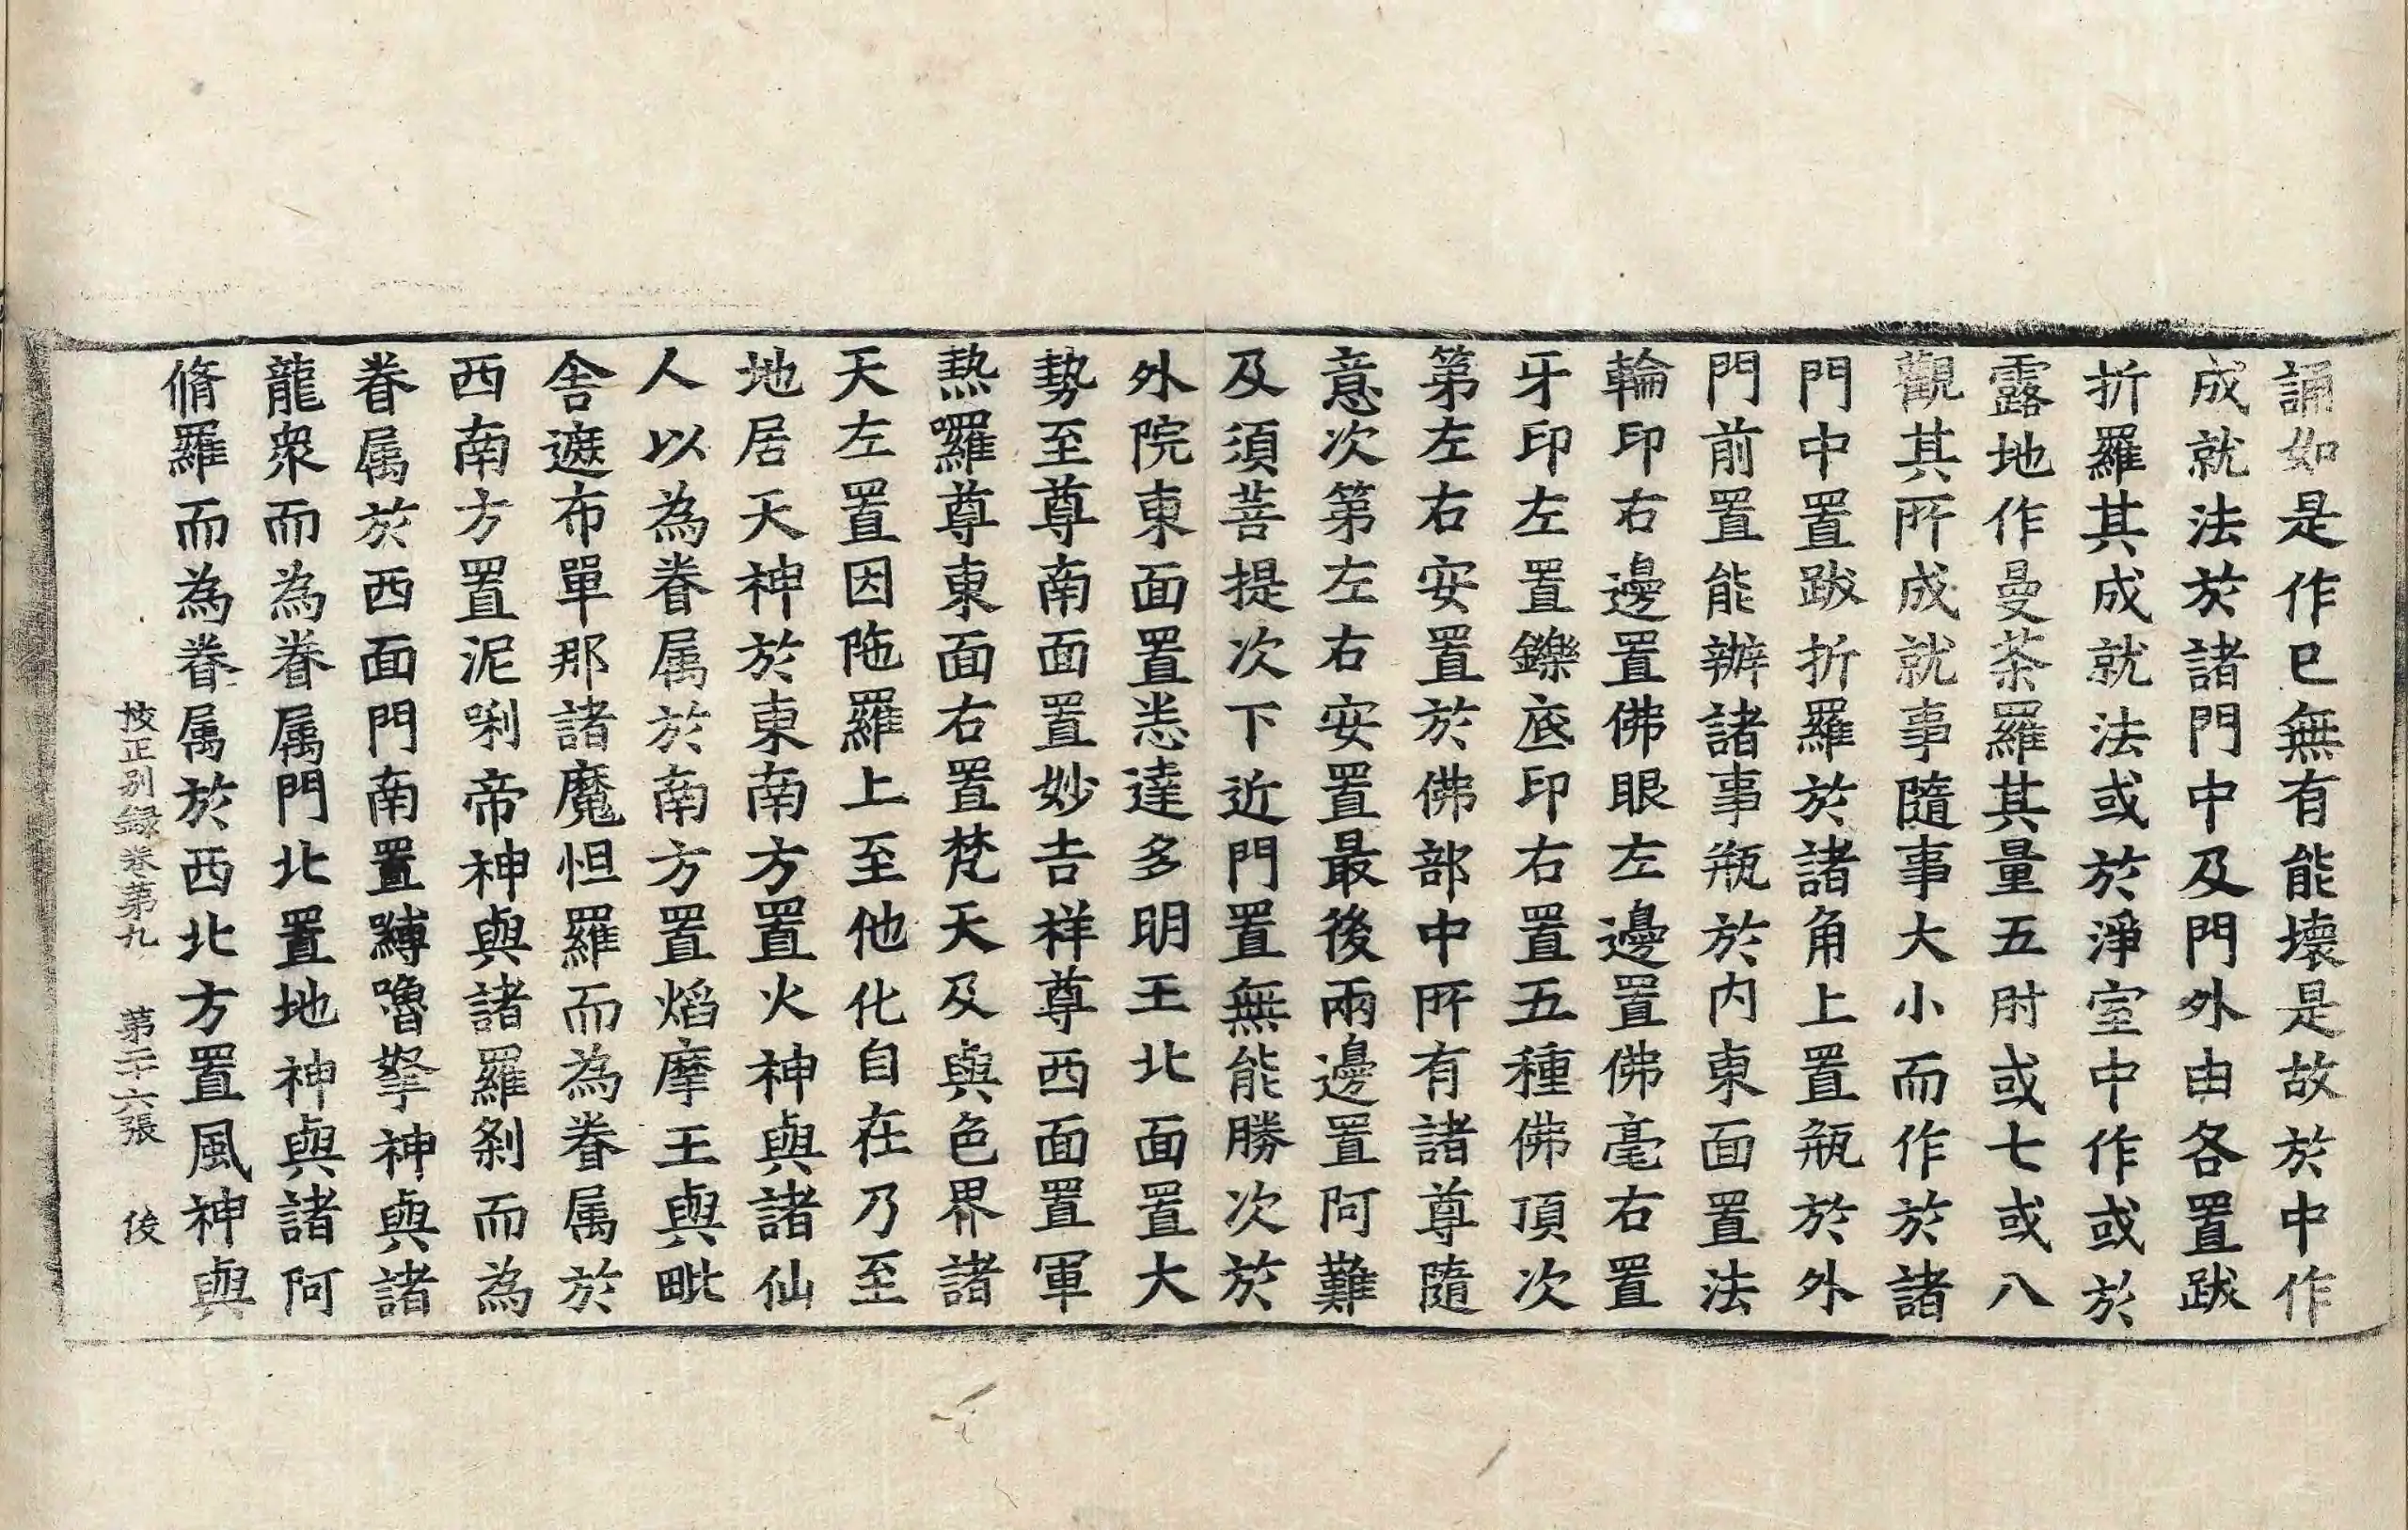 誦如是作已無有能壞是故於中作
成就法於諸門中及門外由各置跋
折羅其成就法或於淨室中作或於
露地作曼荼羅其量五肘或七或八
觀其所成就事隨事大小而作於諸
門中置跋折羅於諸角上置瓶於外
門前置能辦諸事瓶於內東面置法
輪印右邊置佛眼左邊置佛毫右置
牙印左置鑠底印右置五種佛頂次
第左右安置於佛部中所有諸尊隨
意次第左右安置最後兩邊置阿難
及須菩提次下近門置無能勝次於
外院東面置悉達多明王北面置大
勢至尊南面置妙吉祥尊西面置軍
𤍠囉尊東面右置梵天及與色界諸
天左置因陁羅上至他化自在乃至
地居天神於東南方置火神與諸仙
人以為眷属於南方置焰摩王與毗
舍遮布單那諸魔怛羅而為眷属於
西南方置泥唎帝神與諸羅剎而為
眷属於西面門南置嚩嚕拏神與諸
龍衆而為眷属門北置地神與諸阿
脩羅而為眷属於西北方置風神與
挍正别録卷第九 第二十六張 俊